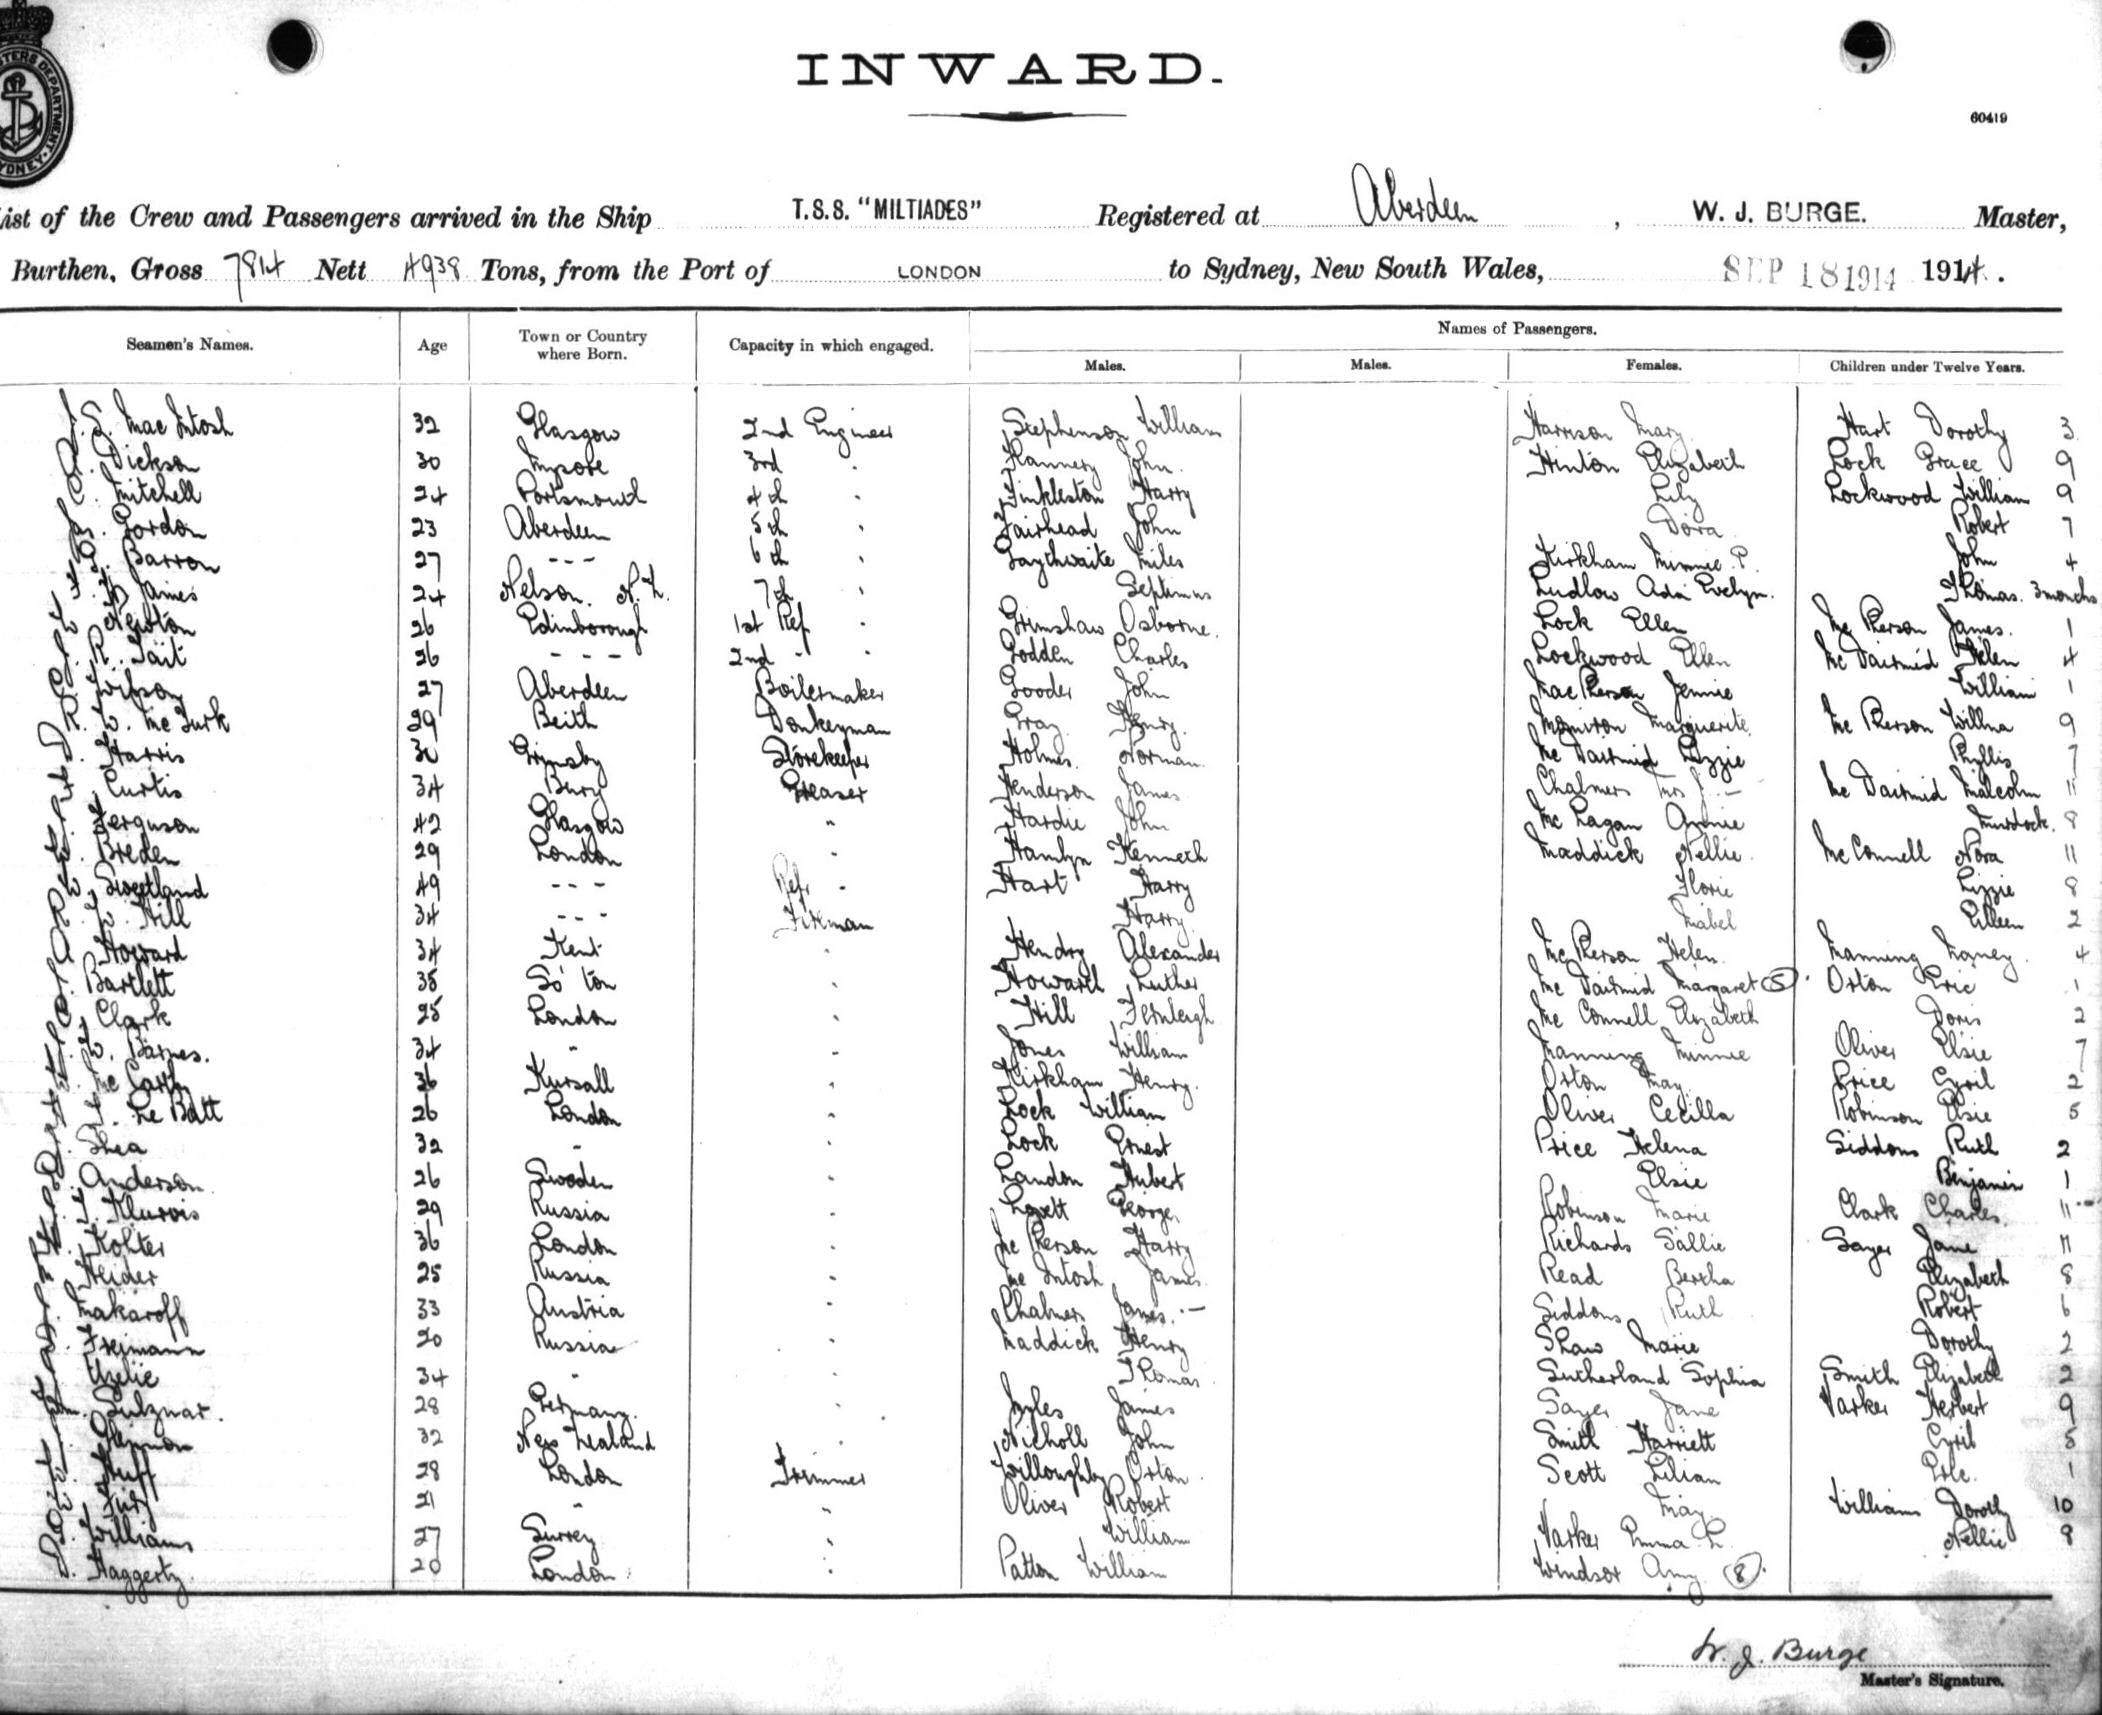 INWARD.
60419
List of the Crew and Passengers arrived in the Ship T.S.S. "MILTIADES" Registered at Aberdeen, W. J. BURGE. Master,
Burthen, Gross 7814 Nett 4938 Tons, from the Port of LONDON to Sydney, New South Wales, SEP 18 1914 1914.
Names of Passengers.
Seamen's Names. Age Town or Country where Born. Capacity in which engaged. Males. Males. Females. Children under Twelve Years.
Mac Intosh 32 Glasgow 2nd Engineer Stephenson William Harrison Mary Hart Dorothy 3
Dickson 30 Mysore 3rd " Flannery John Hinton Elizabeth Lock Grace 9
Mitchell 24 Portsmouth 4th " Finkleston Harry Lily Lockwood William 9
Gordon 23 Aberdeen 5th " Fairhead John Dora Robert 7
Barron 27 - - - 6th " Gaythwaite Miles Kirkham Minnie P. John 4
James 24 Nelson. N.Z. 7th " Septimus Ludlow Ada Evelyn. Thomas. 3 months
Newton 26 Edinborough 1st Ref " Grimshaw Osborne. Lock Ellen Mc Pherson James. 1
R. Tait 26 - - - 2nd " " Godden Charles Lockwood Ellen Mc Dairmid Helen 4
Wilson 27 Aberdeen Boilermaker Gooder John Mac Pherson Jennie William 1
W. Mc Turk 29 Beith Donkeyman Gray Henry. Marguerite Mc Pherson Wilma 9
Harris Grimsby Storekeeper Holmes. Norman. Mc Dairmid Lizzie Phyllis 7
Curtis 34 Bury Greaser Henderson James Chalmers Mrs J. - Mc Dairmid Malcolm 11
Ferguson 42 Glasgow " Hardie John Mc Lagan Annie Murdock. 8
Breden 29 London " Hamlyn Kenneth Maddick Nellie. Mc Connell Nora 11
Sweetland 49 - - - Refr " Hart Harry Florie Lizzie 8
W. Hill 34 - - - Fireman Harry Mabel Eileen 2
Howard 34 Kent " Hendry Alexander Mc Pherson Helen. Manning Nancy. 4
Bartlett 35 So'ton " Howarth Luther Mc Dairmid Margaret (5). Orton Eric 1
Clark 25 London " Hill Fernleigh Mc Connell Elizabeth Doris 2
W. Barnes. 34 " " Jones William Manning Minnie Oliver Elsie 7
Mc Carthy 36 " Kirkham Henry. Orton May. Price Cyril 2
Le Batt 26 London " Lock William Oliver Cecilia Robinson Elsie 5
Shea 32 " " Lock Ernest Price Helena Siddons Ruth 2
Anderson. 26 Sweden " Landon Hubert Elsie Benjamin 1
29 Russia " Lovett George, Robinson Marie Clark Charles. 11
Kohter 36 London " Mc Pherson Harry Richards Sallie Sayer Jane 11
Heider 25 Russia " Mc Intosh James. Read Bertha Elizabeth 8
Makaroff 33 Austria " Chalmers James. - Siddons Ruth Robert 6
Freimann 20 Russia " Maddick Henry Shaw Marie Dorothy 2
34 " Thomas Sutherland Sophia Smith Elizabeth 2
28 Germany. " Myles James Sayer Jane Varker Herbert 9
32 New Zealand " Nicholl John Smith Harriett Cyril 5
28 London Trimmer Willoughby Orton. Scott Lilian 1
21 " " Oliver Robert May. Williams Dorothy 10
Williams 27 Surrey " William Varker Emma L. Nellie 8
D. Haggerty. 20 London. " Patton William Windsor Amy (8).
W. J. Burge
Master's Signature.